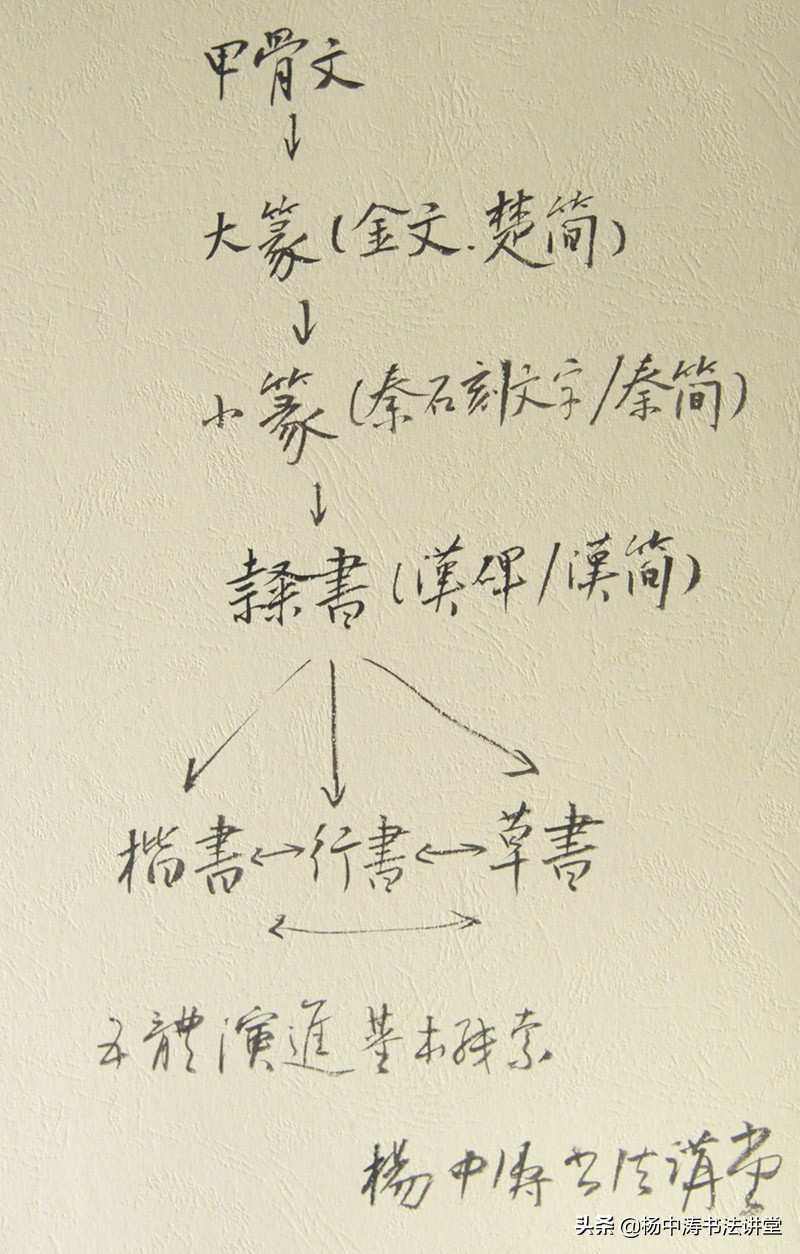 甲骨文
↓
大篆(金文.楚简)
↓
小篆(秦石刻文字/秦简)
↓
隸書(漢碑/漢简)
楷書↔行書↔草書
五體演進基本线索
楊中涛书法講堂
头条 @杨中涛书法讲堂